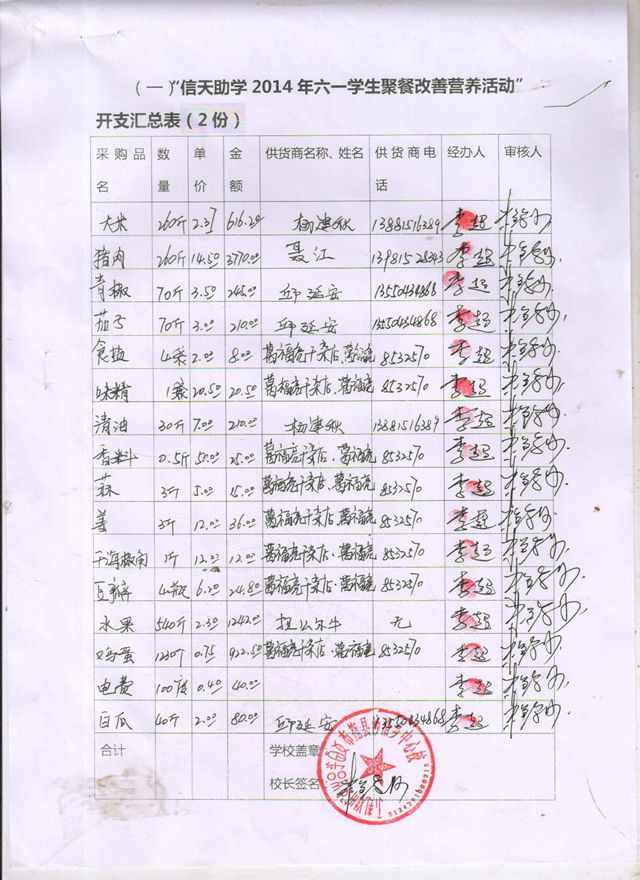 （一）“信天助学 2014 年六一学生聚餐改善营养活动”
开支汇总表（2 份）
采购品名 数量 单价 金额 供货商名称、姓名 供货商电话 经办人 审核人
大米 260斤 2.37 616.20 杨建秋 13881516389 李超
猪肉 260斤 14.50 3770.00 聂江 13981528343 李超
青椒 70斤 3.50 245.00 邱延安 13550434868 李超
茄子 70斤 3.00 210.00 邱延安 13550434868 李超
食盐 4袋 2.00 8.00 葛福亮干菜店、葛福亮 8532570 李超
味精 1袋 20.50 20.50 葛福亮干菜店、葛福亮 8532570 李超
清油 30斤 7.00 210.00 杨建秋 13881516389 李超
香料 0.5斤 50.00 25.00 葛福亮干菜店、葛福亮 8532570 李超
蒜 3斤 5.00 15.00 葛福亮干菜店、葛福亮 8532570 李超
姜 3斤 12.00 36.00 葛福亮干菜店、葛福亮 8532570 李超
1斤 12.00 12.00 葛福亮干菜店、葛福亮 8532570 李超
豆瓣 4瓶 6.20 24.80 葛福亮干菜店、葛福亮 8532570 李超
水果 540斤 2.30 1242.00 无 李超
鸡蛋 1230个 0.75 922.50 葛福亮干菜店、葛福亮 8532570 李超
电费 100度 0.40 40.00 李超
白瓜 40斤 2.00 80.00 邱延安 13550434868 李超
合计 学校盖章
校长签名